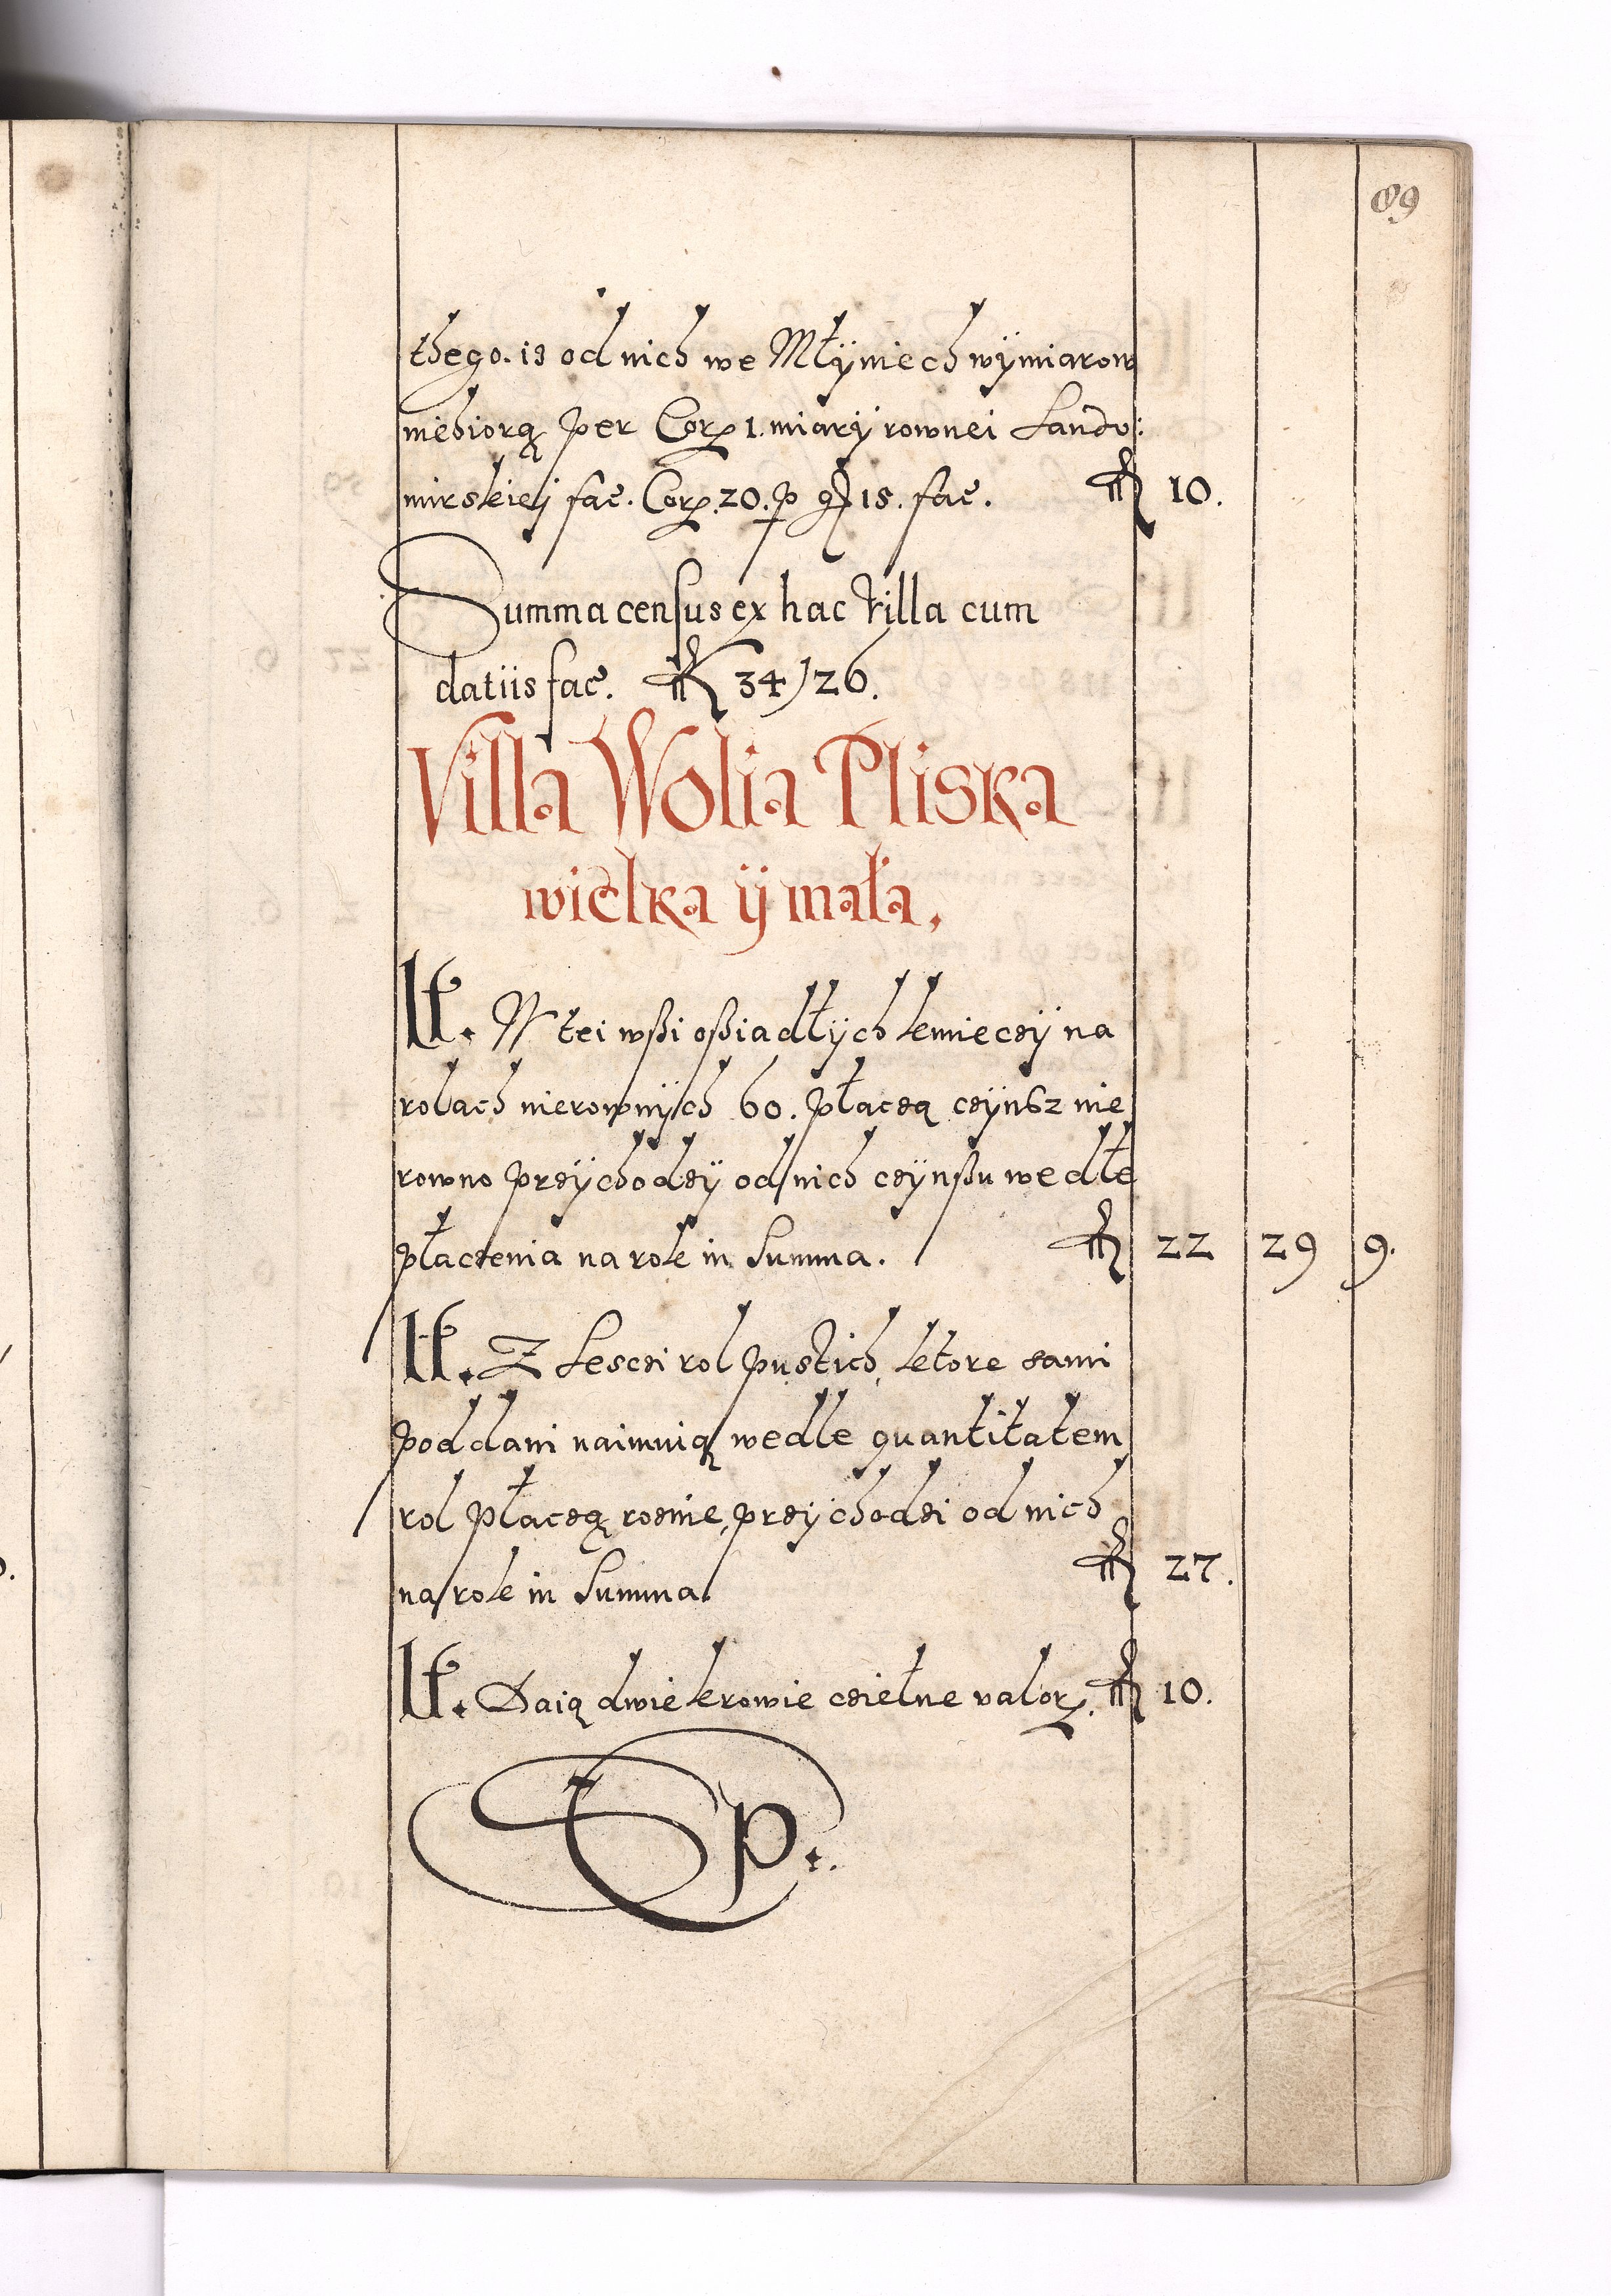 69
thego. iz od nich we Młÿniech wÿmiarow
niebiorą per Corz 1. miarÿ rownei Sando:
mirskieÿ fac. Corz. 20. p gr 15. fac. fl 10.
Summa census ex hac villa cum
datiis fac. fl 34/26.
Villa Wolia Pliska
wielka ÿ mała.
It. W tei wßi oßiadłÿch kmieczÿ na
rolach nierownÿch 60. płaczą czÿnsz nie
rowno przÿchodzÿ od nich czÿnßu wedle
płaczenia na rok in Summa. fl 22 29 9.
It. Z Sesczi rol pustich, ktore sami
poddani naimuią wedle quantitatem
rol płaczą rocznie, przÿchodzi od nich
na rok in Summa fl 27.
It. Daią dwie krowie czielne valorz. fl 10.